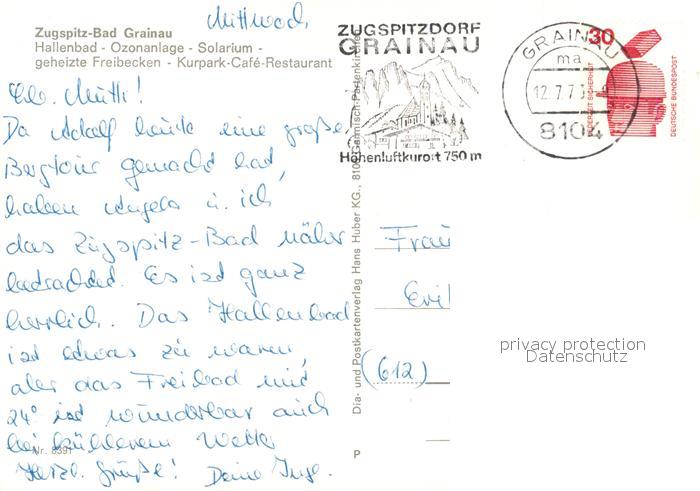 Mittwoch
Zugspitz-Bad Grainau
Hallenbad - Ozonanlage - Solarium -
geheizte Freibecken - Kurpark-Café-Restaurant
Lb. Mutti!
Da Adolf heute eine große
Bergtour gemacht hat,
haben Angela u. ich
das Zugspitz-Bad näher
betrachtet. Es ist ganz
herrlich. Das Hallenbad
ist etwas zu warm,
aber das Freibad mit
24° ist wunderbar auch
bei kühlerem Wetter
Nr. 8391
Herzl. Grüße! Deine Inge.
Dia- und Postkartenverlag Hans Huber KG., 8100 Garmisch-Partenkirchen
P
ZUGSPITZDORF
GRAINAU
Höhenluftkurort 750 m
GRAINAU
ma
12.7.7
8104
30
JEDERZEIT SICHERHEIT
DEUTSCHE BUNDESPOST
Frau
(612)
privacy protection
Datenschutz